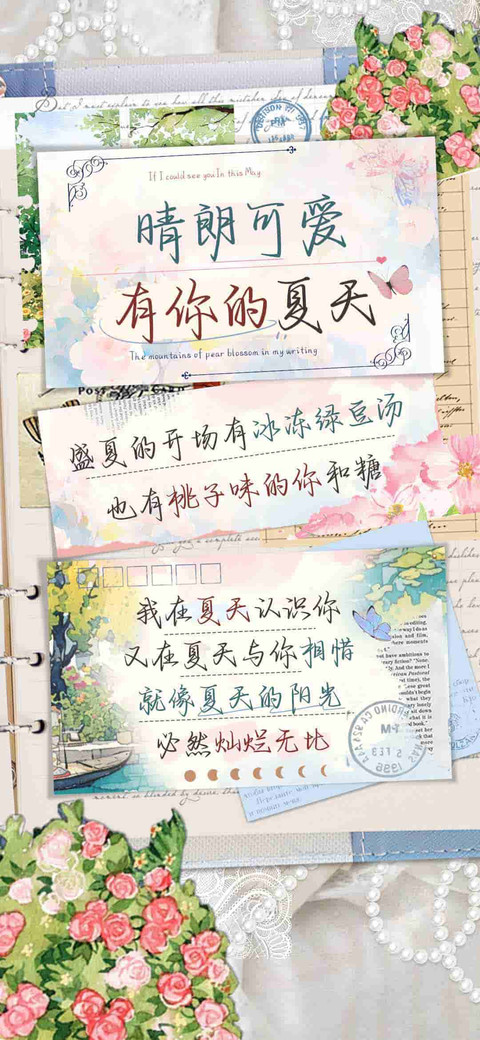 If I could see you In this May
晴朗可爱
有你的夏天
The mountains of pear blossom in my writing
盛夏的开场有冰冻绿豆汤
也有桃子味的你和糖
我在夏天认识你
又在夏天与你相惜
就像夏天的阳光
必然灿烂无比